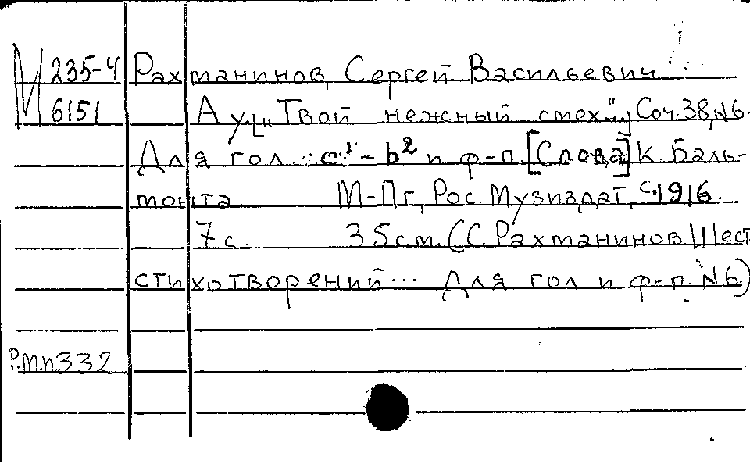 М 235-4 Рахманинов, Сергей Васильевич
6151 Ау! „Твой нежный смех..." Соч. 38, №6.
Для гол. c¹-b² и ф-п. [Слова] К. Баль-
монта М-Пг, Рос. Музиздат, с.1916.
7 с. 35 см. (С. Рахманинов. Шест
стихотворений... Для гол. и ф-п. №6)
Р.мп332